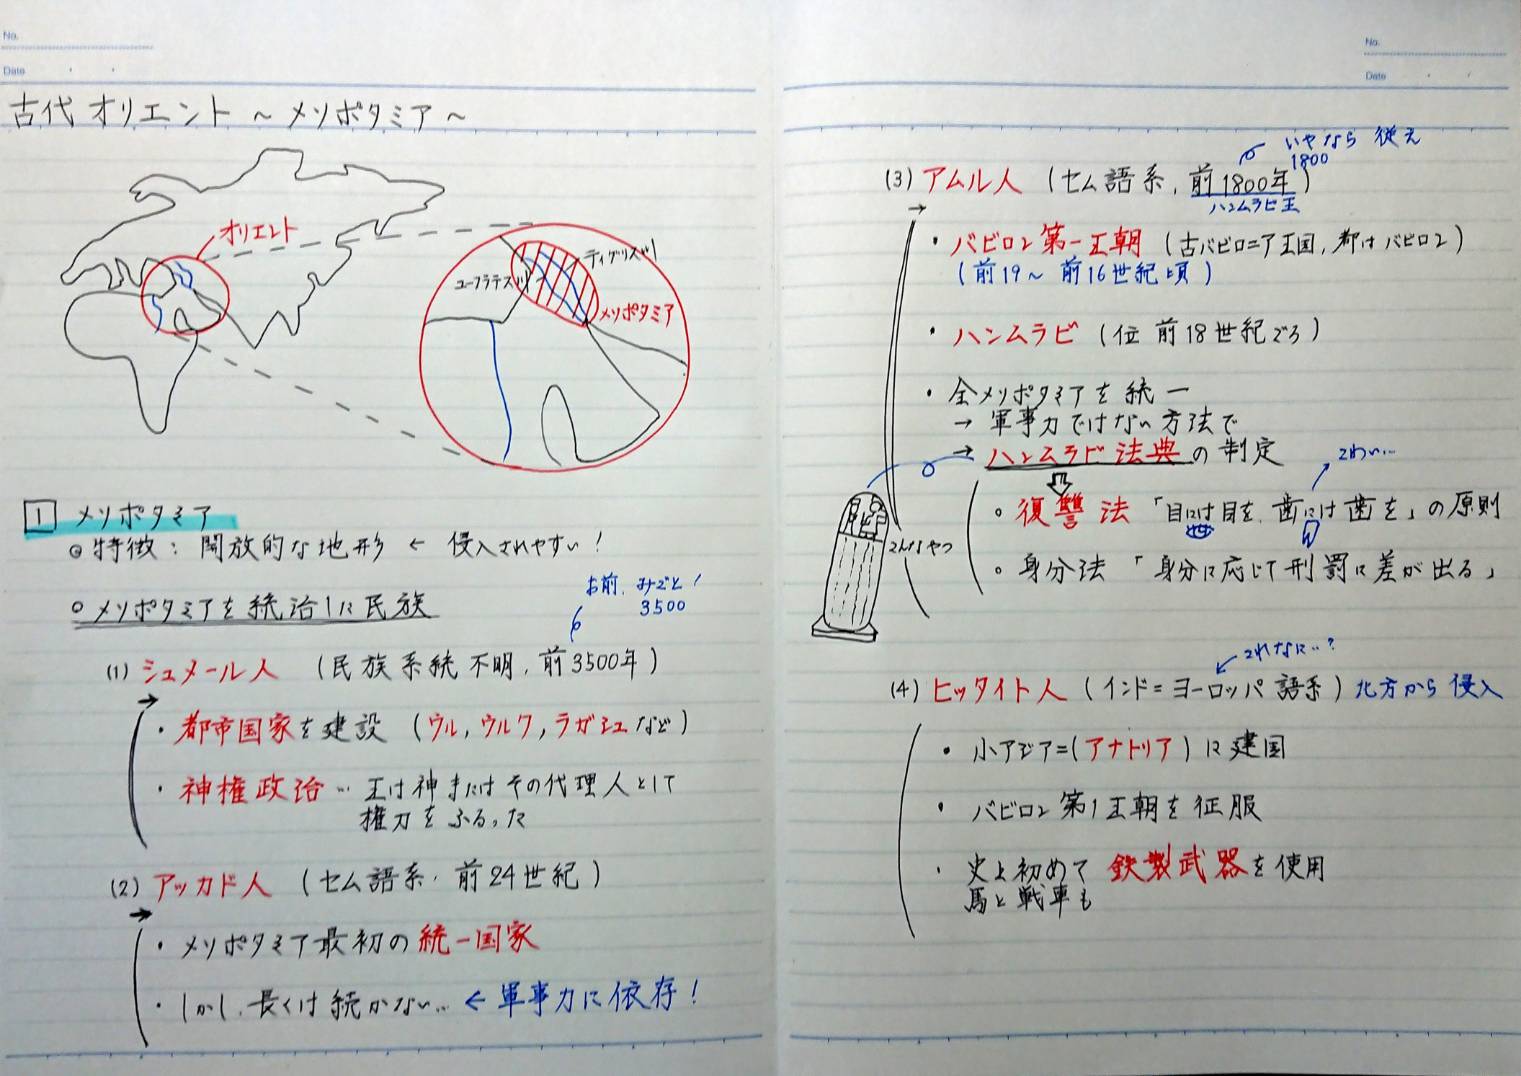 No.
Date
古代オリエント ～メソポタミア～
オリエント
ティグリス川
ユーフラテス川
メソポタミア
1 メソポタミア
◎特徴：開放的な地形 ← 侵入されやすい！
○メソポタミアを統治した民族
お前、みごと！
3500
(1) シュメール人 (民族系統不明，前3500年)
→
・都市国家を建設 (ウル，ウルク，ラガシュなど)
・神権政治… 王は神またはその代理人として
権力をふるった
(2) アッカド人 (セム語系，前24世紀)
→
・メソポタミア最初の統一国家
・しかし、長くは続かない… ← 軍事力に依存！
No.
Date
いやなら 従え
1800
(3) アムル人 (セム語系，前1800年)
ハンムラビ王
→
・バビロン第一王朝 (古バビロニア王国，都はバビロン)
(前19～前16世紀頃)
・ハンムラビ (位 前18世紀ごろ)
・全メソポタミアを統一
→ 軍事力ではない方法で
→ ハンムラビ法典の制定
こわい…
○復讐法「目には目を、歯には歯を」の原則
こんなやつ
○身分法「身分に応じて刑罰に差が出る」
これなに…？
(4) ヒッタイト人 (インド＝ヨーロッパ語系) 北方から侵入
・小アジア＝(アナトリア)に建国
・バビロン第1王朝を征服
・史上初めて鉄製武器を使用
馬と戦車も